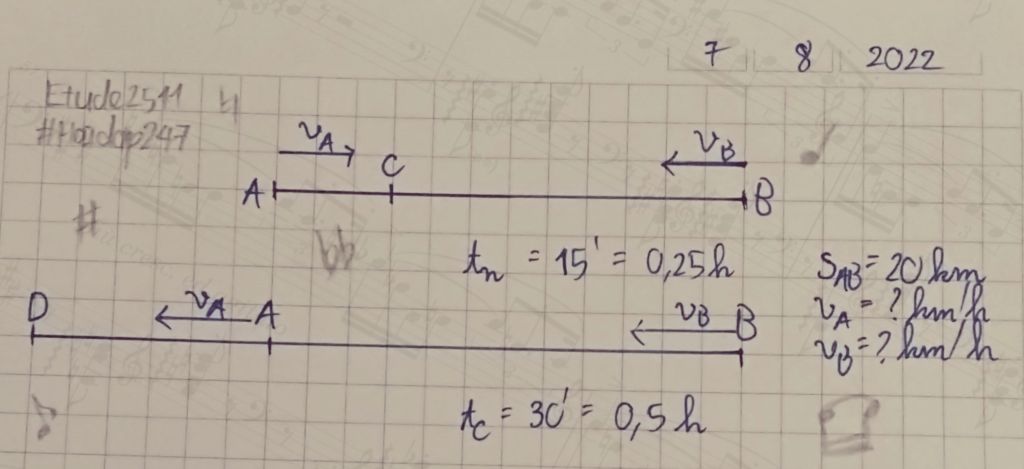 7 8 2022
Etude2511
#Hoidap247
v_A
v_B
A C B
t_n = 15' = 0,25h
S_AB = 20 km
v_A = ? km/h
v_B = ? km/h
D v_A A v_B B
t_c = 30' = 0,5 h